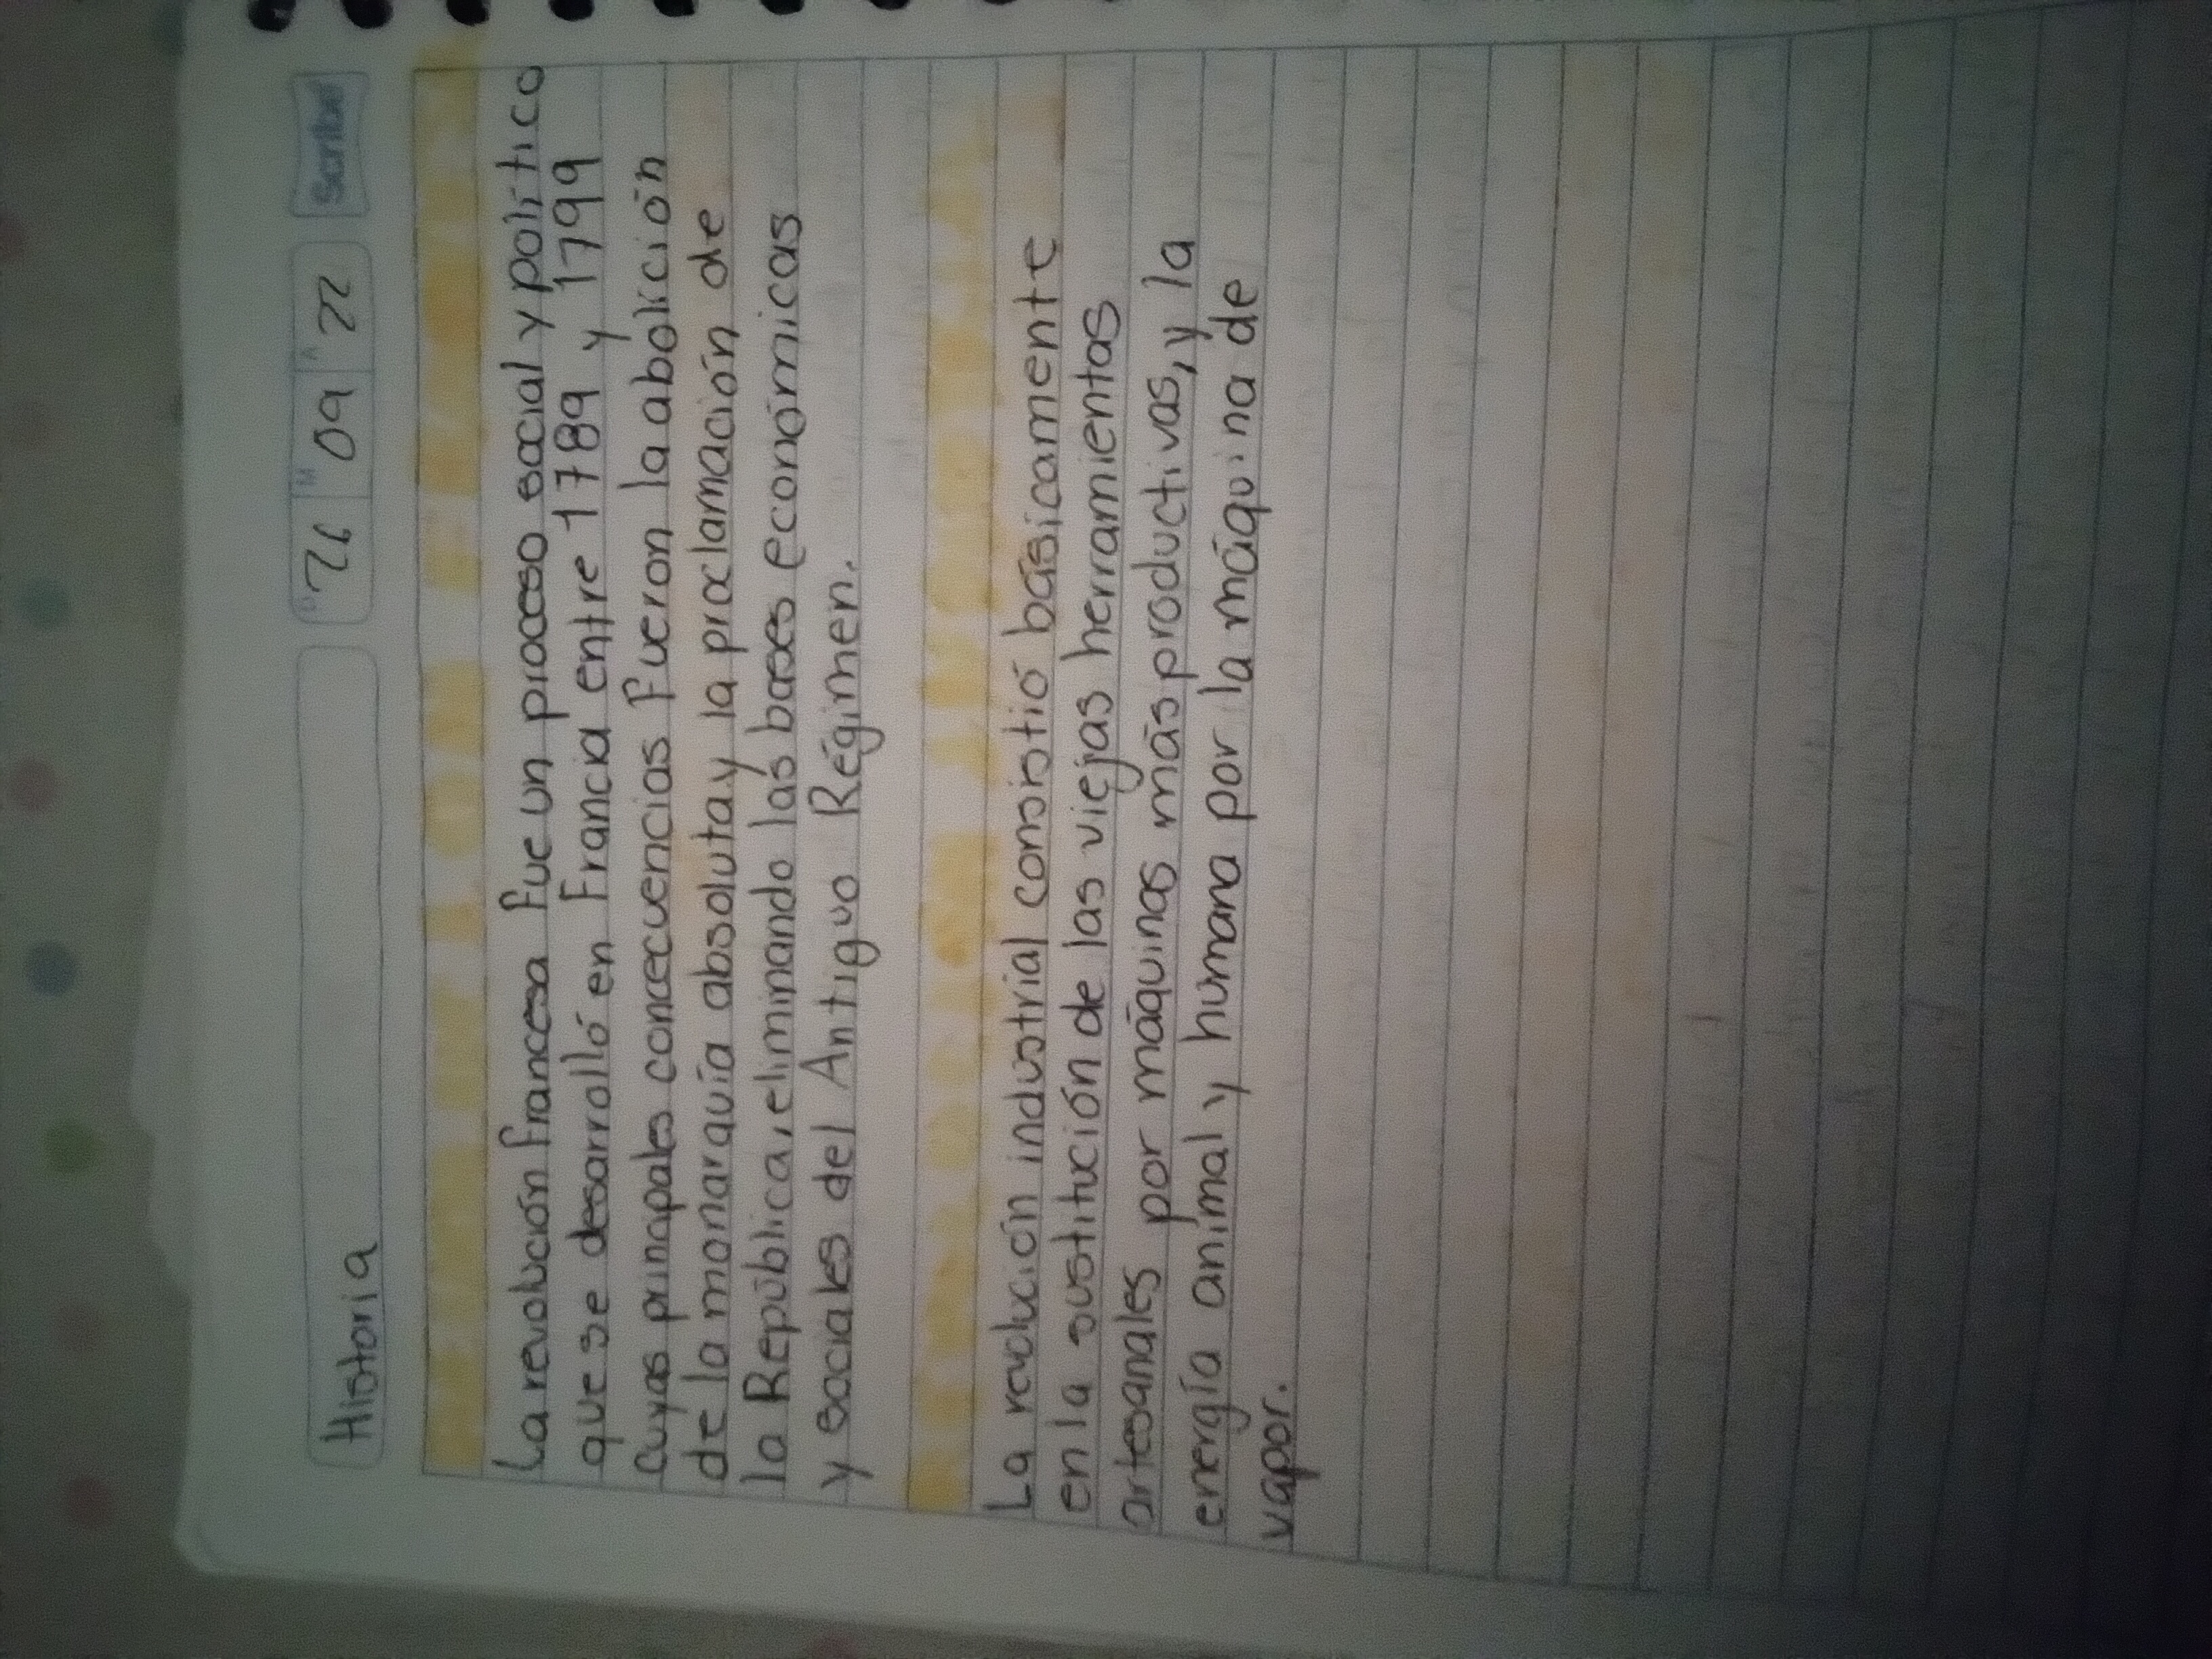 Historia
D 26 M 09 A 22 Scribe
La revolución francesa fue un proceso social y político
que se desarrolló en Francia entre 1789 y 1799
cuyas principales concecuencias fueron la abolición
de la monarquía absoluta y la proclamación de
la República, eliminando las bases económicas
y sociales del Antiguo Régimen.
La revolución industrial consistió básicamente
en la sustitución de las viejas herramientas
artesanales por máquinas más productivas, y la
energía animal y humana por la máquina de
vapor.